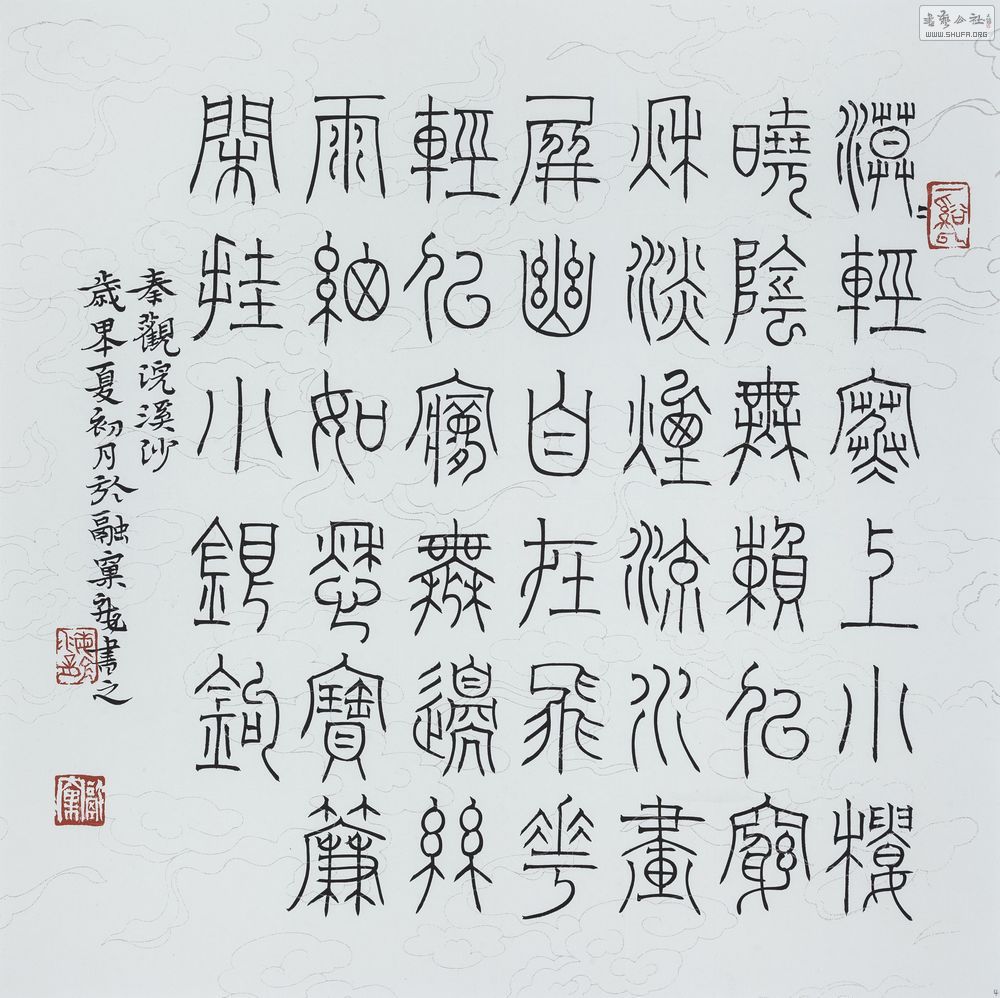 漠〻輕寒上小樓
曉陰無賴似窮
秋淡煙流水畫
屏幽自在飛花
輕似夢無邊絲
雨細如愁寶簾
閑挂小銀鉤
秦觀浣溪沙
歲夏初月於融窠書之
書藝公社
WWW.SHUFA.ORG